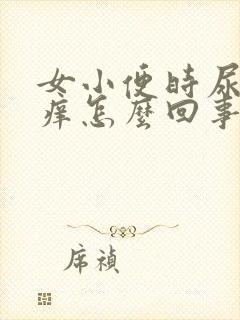 女小便时尿
痒怎麼回事
席祯